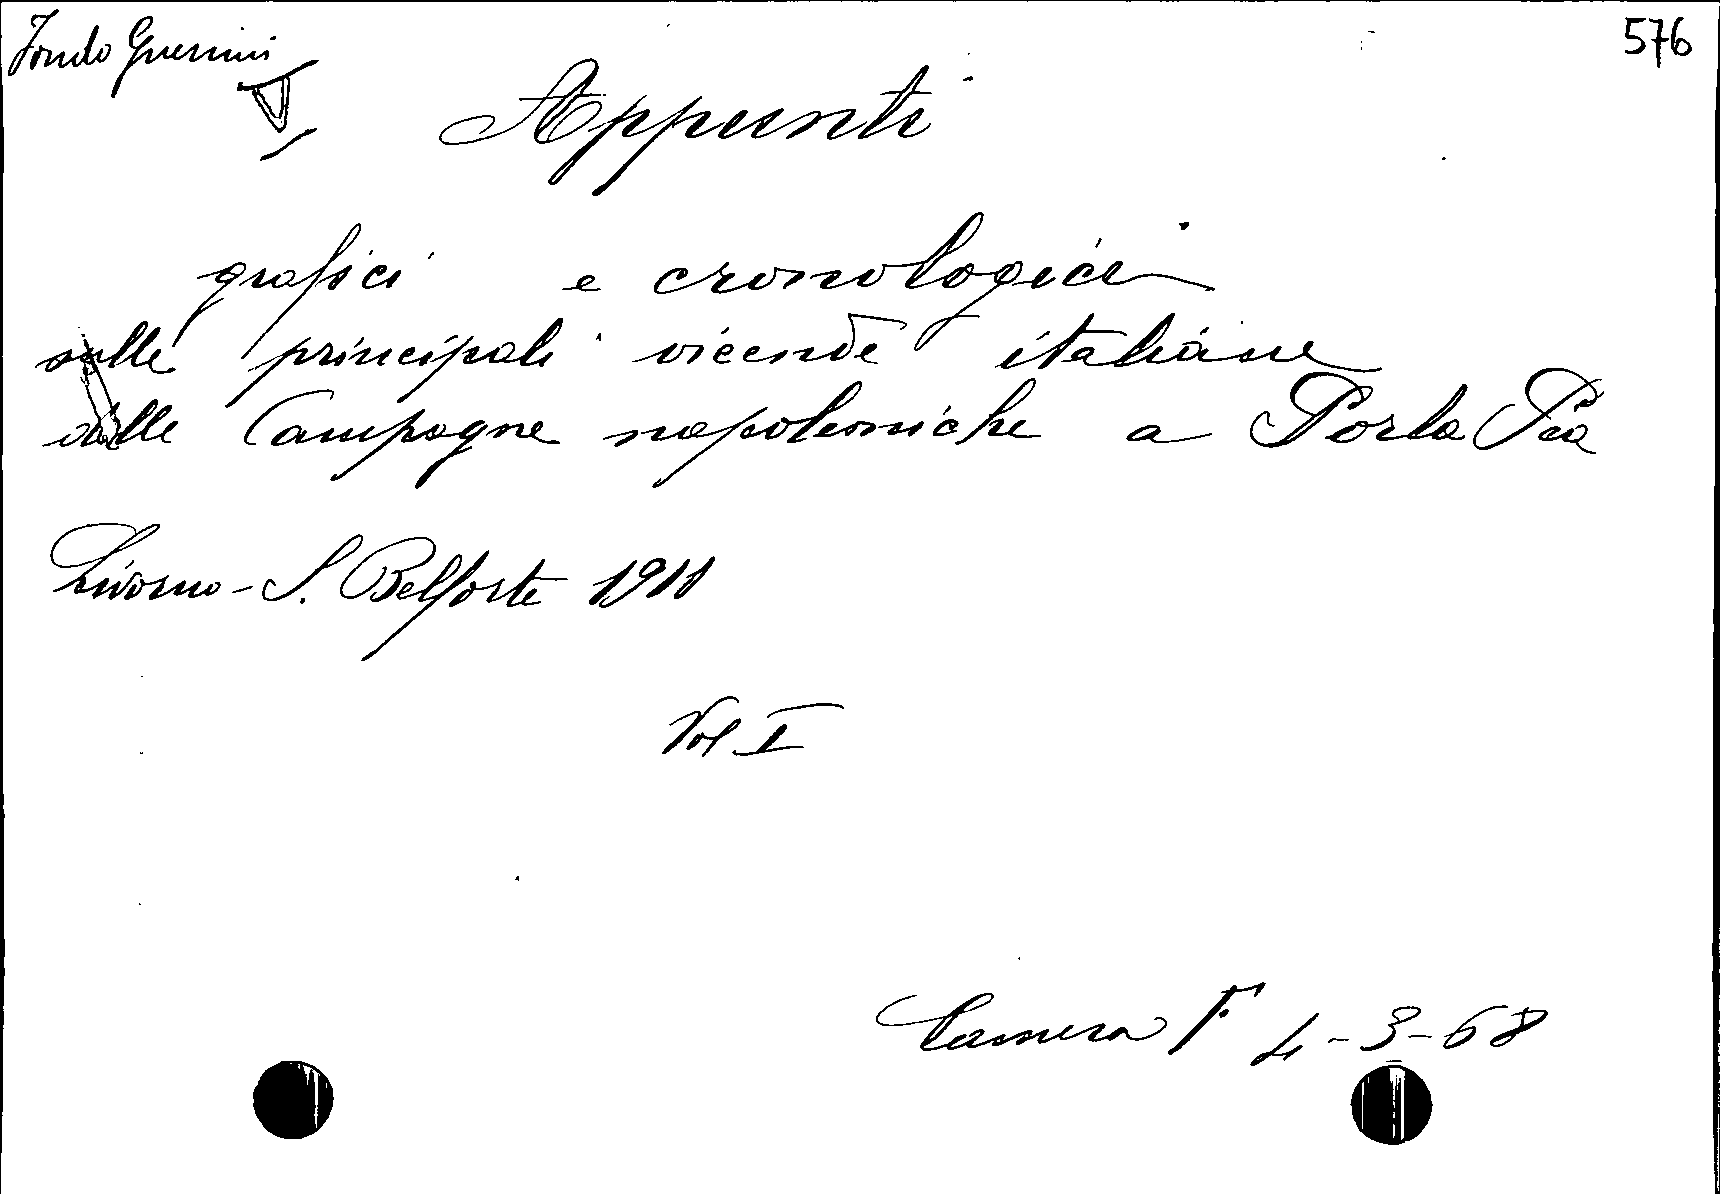 Fondo Guerrini
576
Appunti
grafici e cronologici
sulle principali vicende italiane
dalle Campagne napoleoniche a Porta Pia
Livorno - S. Belforte 1911
Vol I
Camera F. 4-3-68